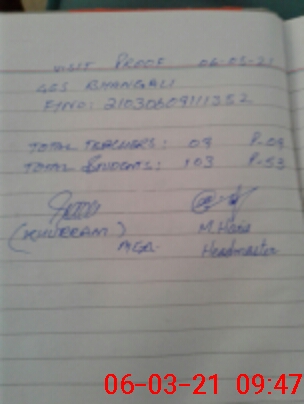 VISIT PROOF 06-03-21
GES BHANGALI
F/NO: 21030609111352
TOTAL TEACHERS: 09 P-09
TOTAL STUDENTS: 103 P-53
(KHURRAM) M.Hanif
MEA Headmaster
06-03-21 09:47